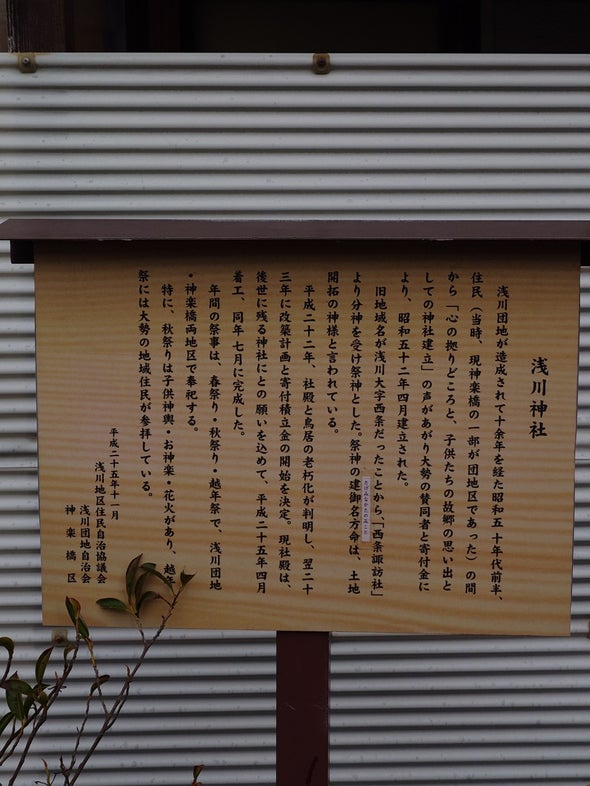 浅川神社
浅川団地が造成されて十余年を経た昭和五十年代前半、
住民（当時、現神楽橋の一部が団地区であった）の間
から「心の拠りどころと、子供たちの故郷の思い出と
しての神社建立」の声があがり大勢の賛同者と寄付金に
より、昭和五十二年四月建立された。
旧地域名が浅川大字西条だったことから、「西条諏訪社」
より分神を受け祭神とした。祭神の建御名方命は、土地
たけみなかたのみこと
開拓の神様と言われている。
平成二十二年、社殿と鳥居の老朽化が判明し、翌二十
三年に改築計画と寄付積立金の開始を決定。現社殿は、
後世に残る神社にとの願いを込めて、平成二十五年四月
着工、同年七月に完成した。
年間の祭事は、春祭り・秋祭り・越年祭で、浅川団地
・神楽橋両地区で奉祀する。
特に、秋祭りは子供神輿・お神楽・花火があり、越年
祭には大勢の地域住民が参拝している。
平成二十五年十一月
浅川地区住民自治協議会
浅川団地自治会
神楽橋区